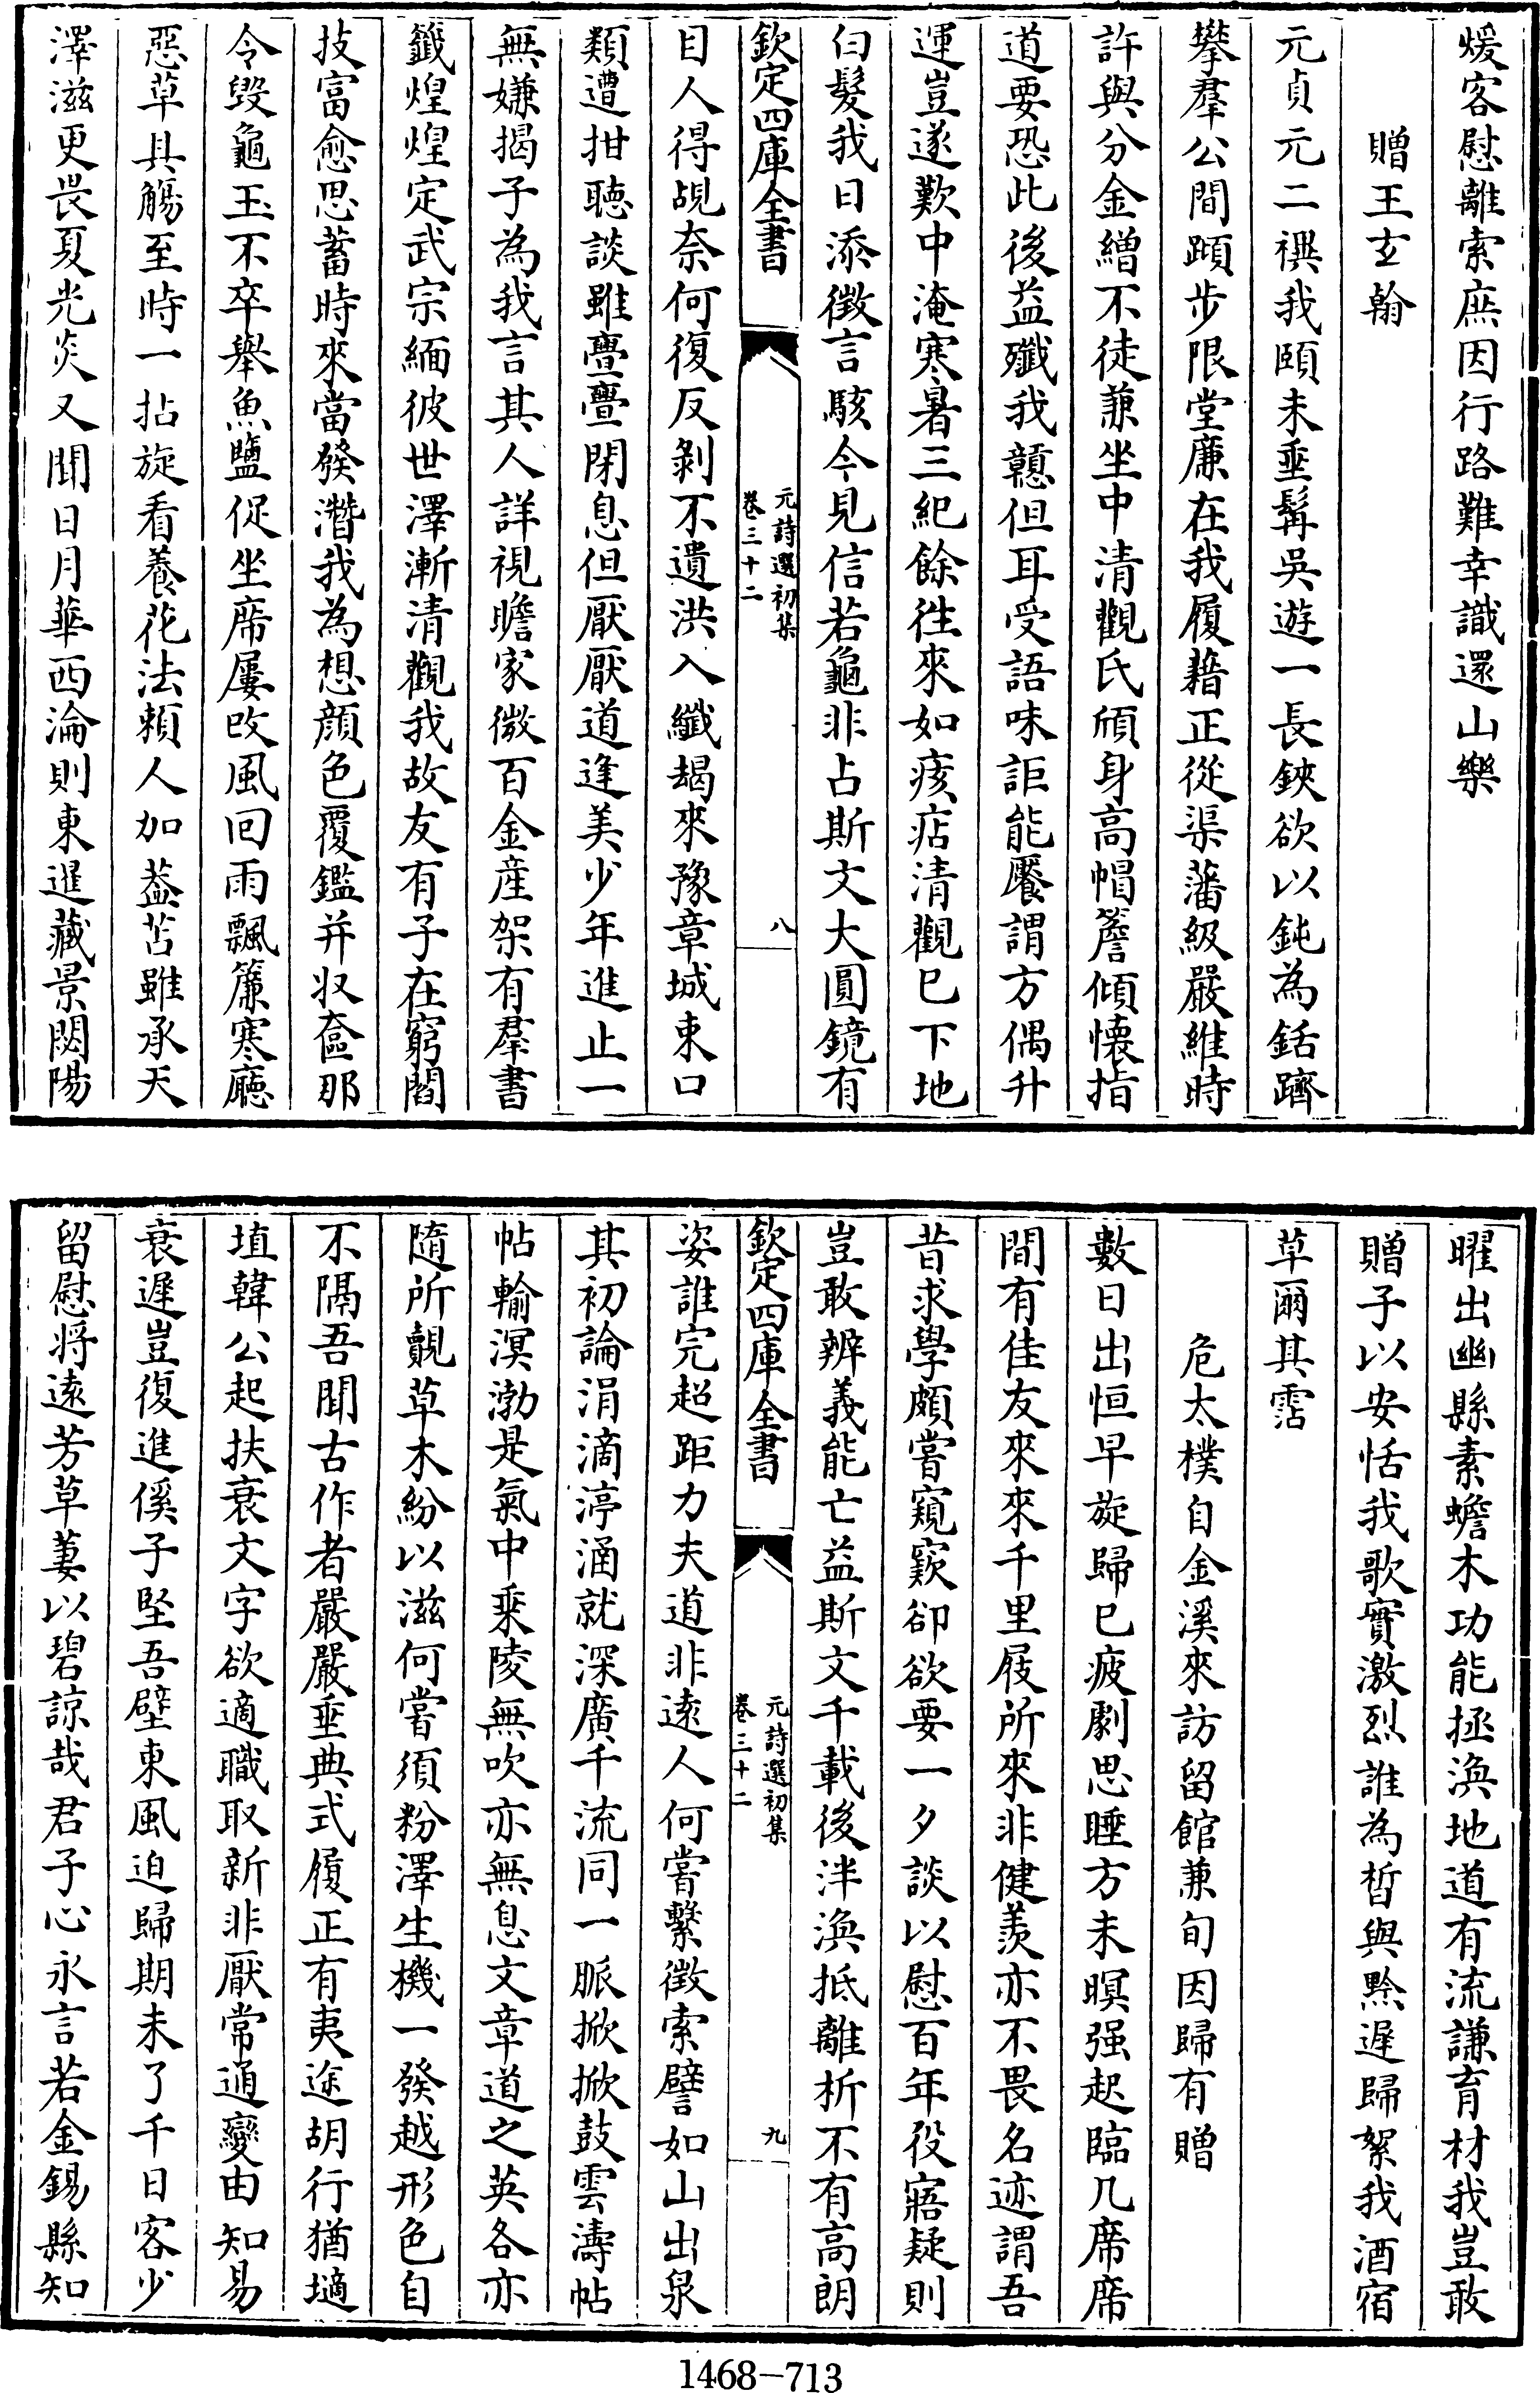 煖客慰離索庶因行路難幸識還山樂
贈王玄翰
元貞元二禩我頤未垂髯吳遊一長鋏欲以鈍為銛躋
攀羣公間蹞步限堂廉在我履藉正從渠藩級嚴維時
許與分金繒不徒兼坐中清觀氏頎身高帽簷傾懷指
道要恐此後益殲我戇但耳受語味詎能饜謂方偶升
運豈遂歎中淹寒暑三紀餘往來如痎痁清觀已下地
白髮我日添徵言駭今見信若龜非占斯文大圓鏡有
欽定四庫全書
元詩選初集
卷三十二
八
目人得覘奈何復反剝不遺洪入纖朅來豫章城東口
類遭拑聽談雖亹亹閉息但厭厭道逢美少年進止一
無嫌揭子為我言其人詳視瞻家微百金産架有羣書
籤煌煌定武宗緬彼世澤漸清觀我故友有子在窮閻
技富愈思蓄時來當發潛我為想顔色覆鑑并收奩那
令毁龜玉不卒舉魚鹽促坐席屢改風回雨飄簾寒廳
惡草具觴至時一拈旋看養花法頼人加葢苫雖承天
澤滋更畏夏光炎又聞日月華西淪則東暹藏景閟陽
曜出幽縣素蟾木功能拯渙地道有流謙育材我豈敢
贈子以安恬我歌實激烈誰為晳與黔遲歸絮我酒宿
草爾其霑
危太樸自金溪來訪留館兼旬因歸有贈
數日出恒早旋歸已疲劇思睡方未暝强起臨几席席
間有佳友來來千里屐所來非健羨亦不畏名迹謂吾
昔求學頗嘗窺窾卻欲要一夕談以慰百年役寤疑則
豈敢辨義能亡益斯文千載後泮渙抵離析不有高朗
欽定四庫全書
元詩選初集
卷三十二
九
姿誰完超距力夫道非逺人何嘗繫徵索譬如山出泉
其初論涓滴渟涵就深廣千流同一脈掀掀鼓雲濤帖
帖輸溟渤是氣中乗陵無吹亦無息文章道之英各亦
隨所覿草木紛以滋何嘗須粉澤生機一發越形色自
不隔吾聞古作者嚴嚴垂典式履正有夷途胡行猶擿
埴韓公起扶衰文字欲適職取新非厭常通變由知易
衰遲豈復進傒子堅吾壁東風迫歸期未了千日客少
留慰将逺芳草萋以碧諒哉君子心永言若金錫縣知
1468-713